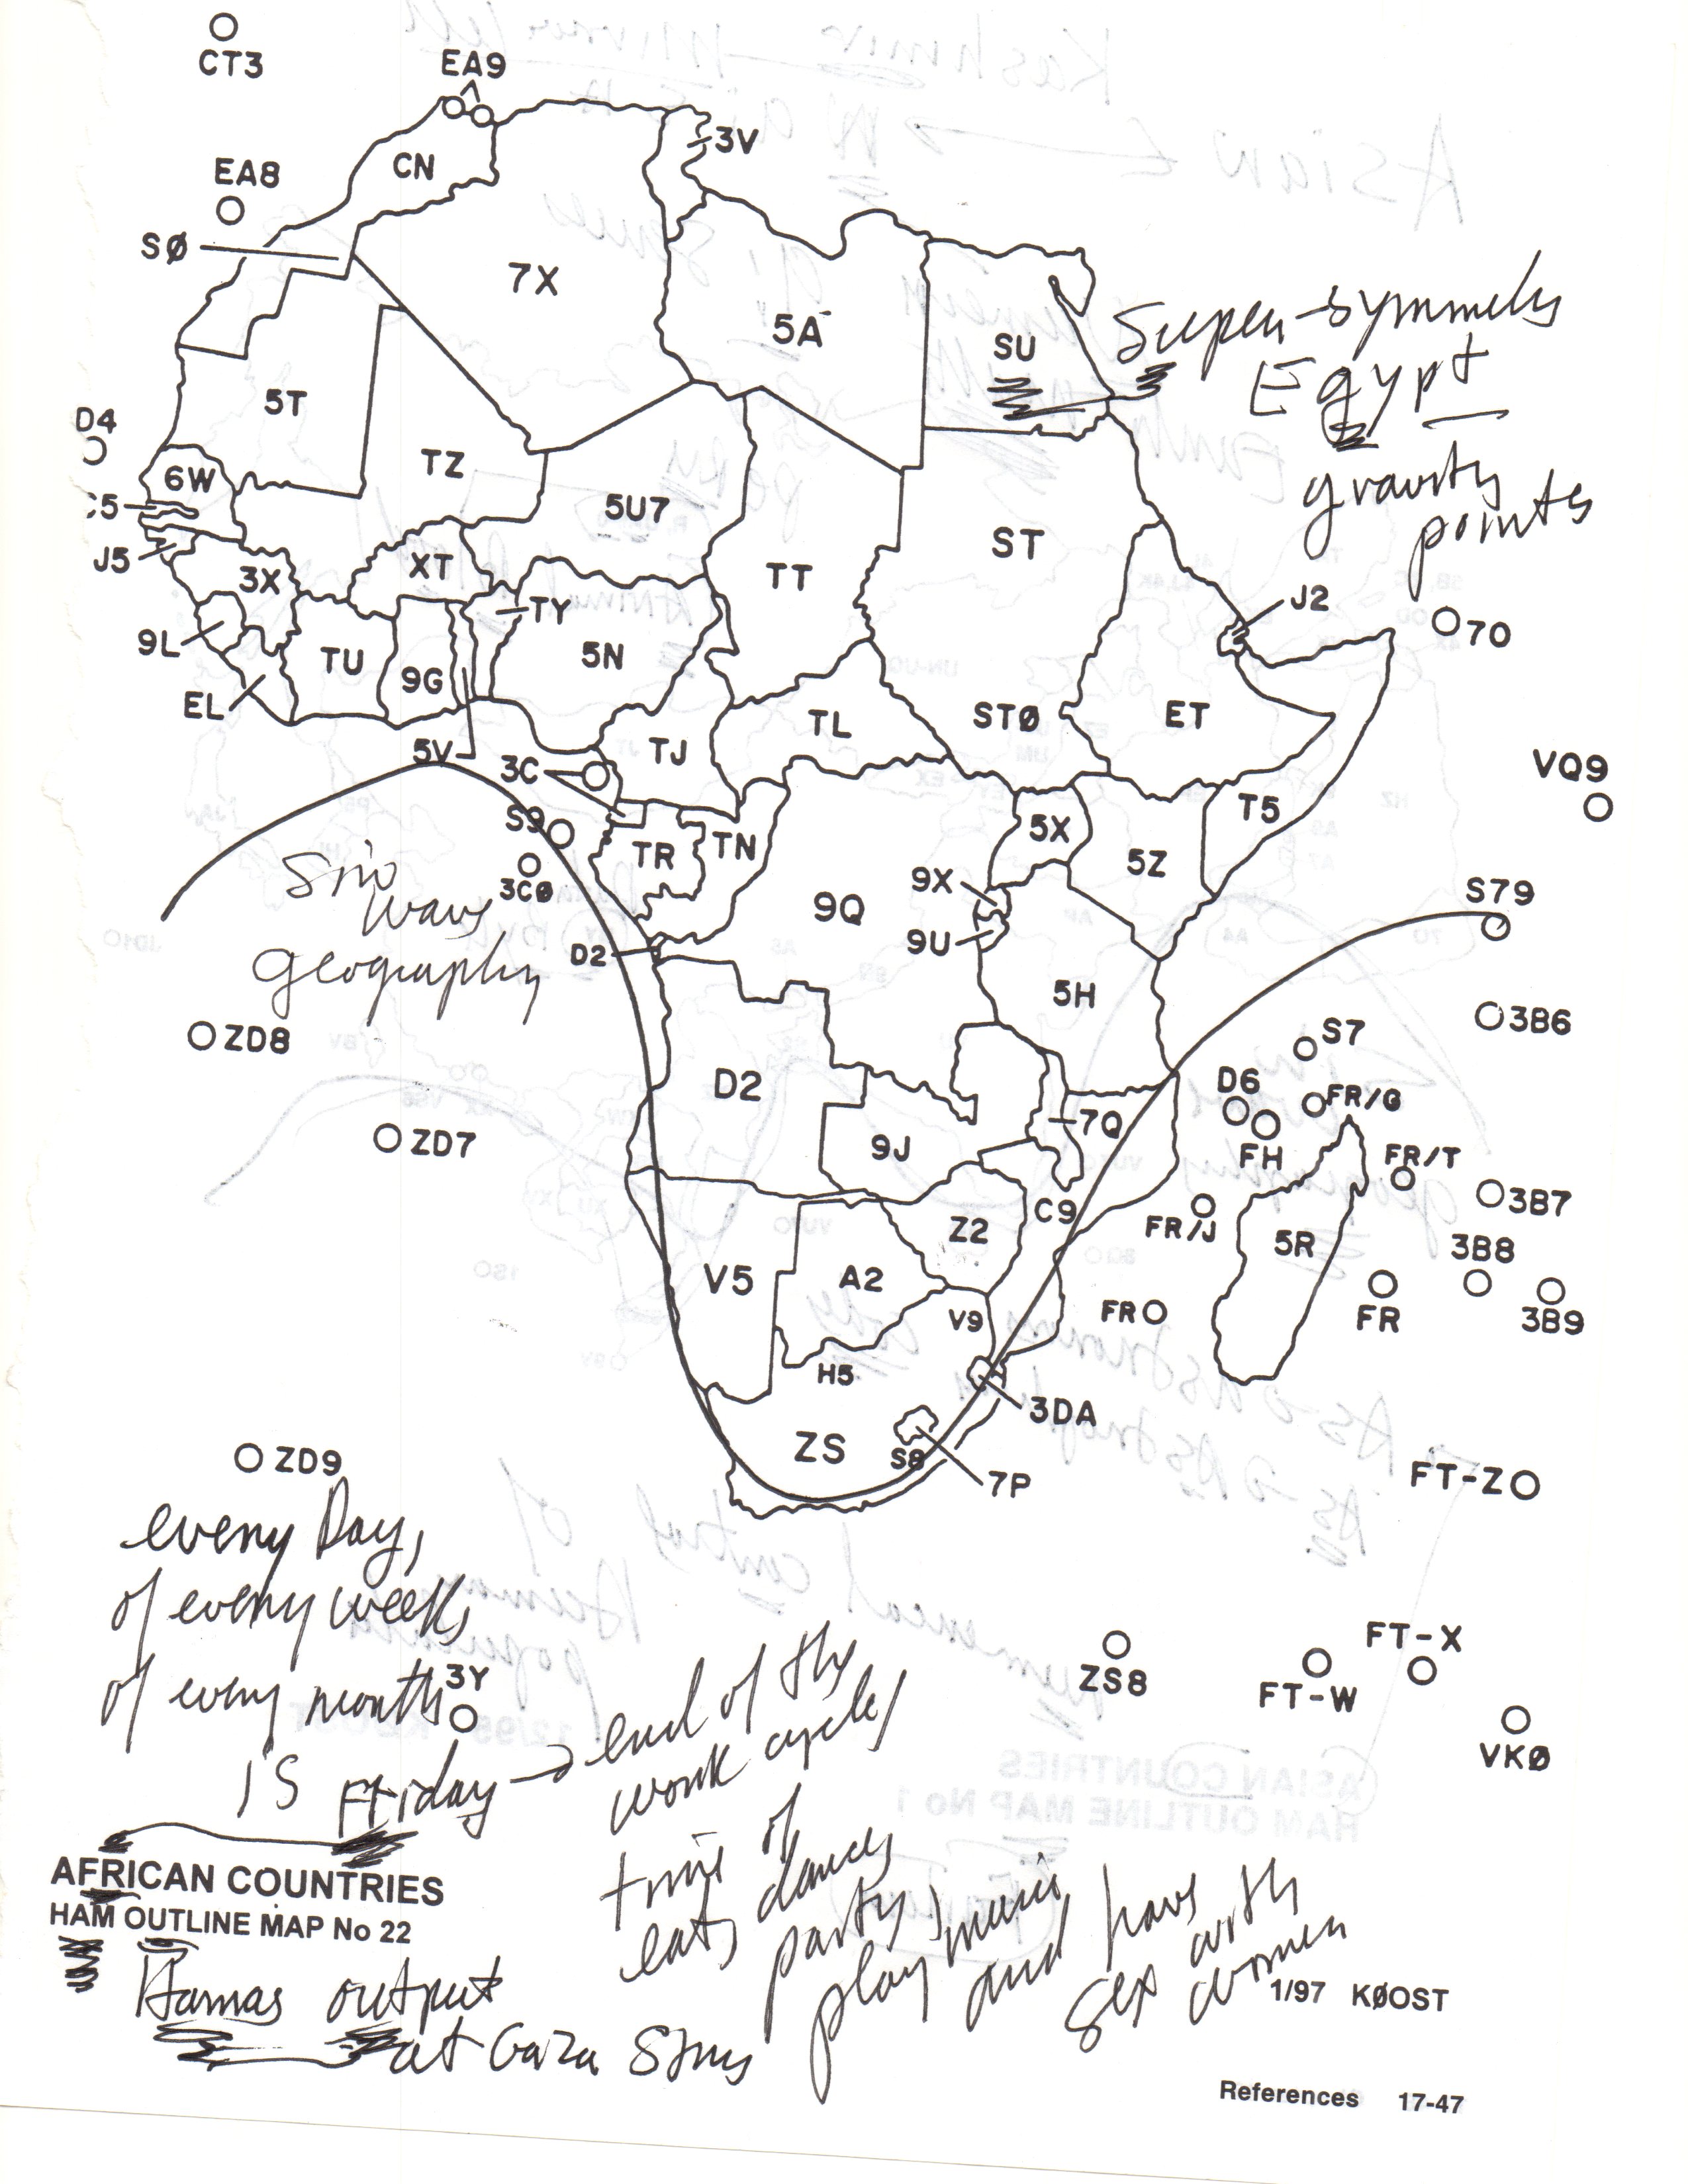 CT3
EA9
3V
CN
EA8
SØ
7X
5A
SU
Super-symmetry
Egypt
gravity
points
5T
D4
TZ
6W
5U7
ST
J5
XT
3X
TT
TY
J2
7O
9L
TU
5N
9G
EL
STØ
ET
TL
TJ
5V
3C
VQ9
T5
S9
5X
TN
TR
5Z
3CØ
9X
S79
9Q
9U
D2
wave
geography
5H
3B6
ZD8
S7
D2
D6
FR/G
7Q
ZD7
9J
FH
FR/T
3B7
C9
FR/J
Z2
5R
3B8
V5
A2
FR
FR
3B9
V9
H5
3DA
ZS
S8
7P
ZD9
FT-Z
every Day,
of every week,
of every month
is Friday → end of the
work cycle,
time of
eat, dance,
party, play music
and have
sex with
women
3Y
ZS8
FT-X
FT-W
VKØ
AFRICAN COUNTRIES
HAM OUTLINE MAP No 22
Hamas output
at Gaza
1/97 KØOST
References 17-47